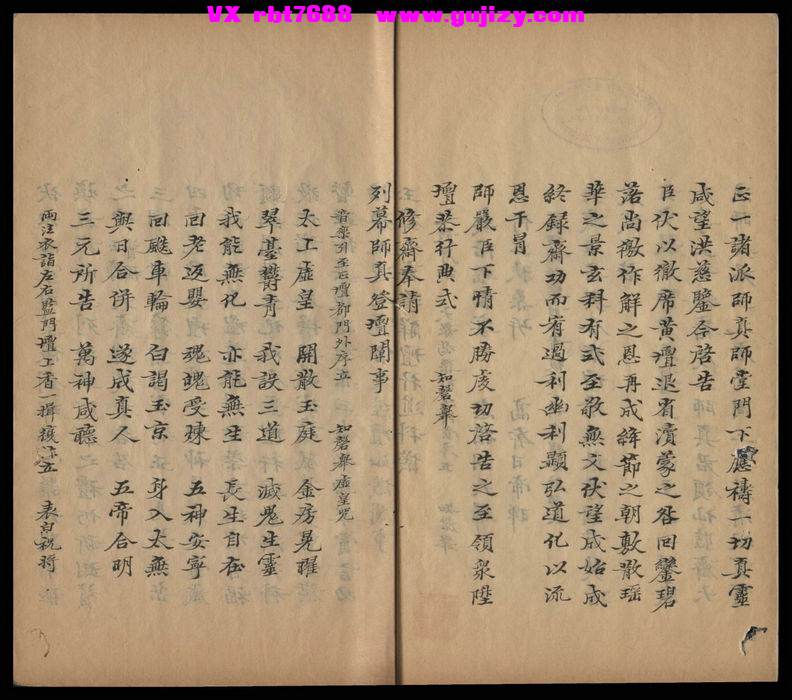 VX rbt7688 www.gujizy.com
正一諸派師真師堂門下應禱一切真靈
咸望洪慈鑒令啓告
臣伏以徹席黃壇退省瀆蒙之咎回鑾碧
落尚徼作解之恩再成絳節之朝敷散瑶
華之景玄科有式至敬無文伏望成始成
終録齋功而宥過利幽利顯弘道化以流
恩干冒
師嚴臣下情不勝虔切啓告之至領衆陞
壇恭行典式 知磬舉
修齋奉請
列幕師真登壇関事
音樂列至正壇都門外序立 知磬舉虛皇咒
太上虛皇 開散玉庭 金房晃曜
翠臺欝青 我設三道 滅鬼生靈
我能無化 亦能無生 長生自在
回老返嬰 魂魄受煉 五神安寧
回飇車輪 白謁玉京 身入太無
與日合併 遂成真人 五帝合明
三元所告 萬神咸聽
兩注衣詣左右監門壇上香一揖 表白祝將